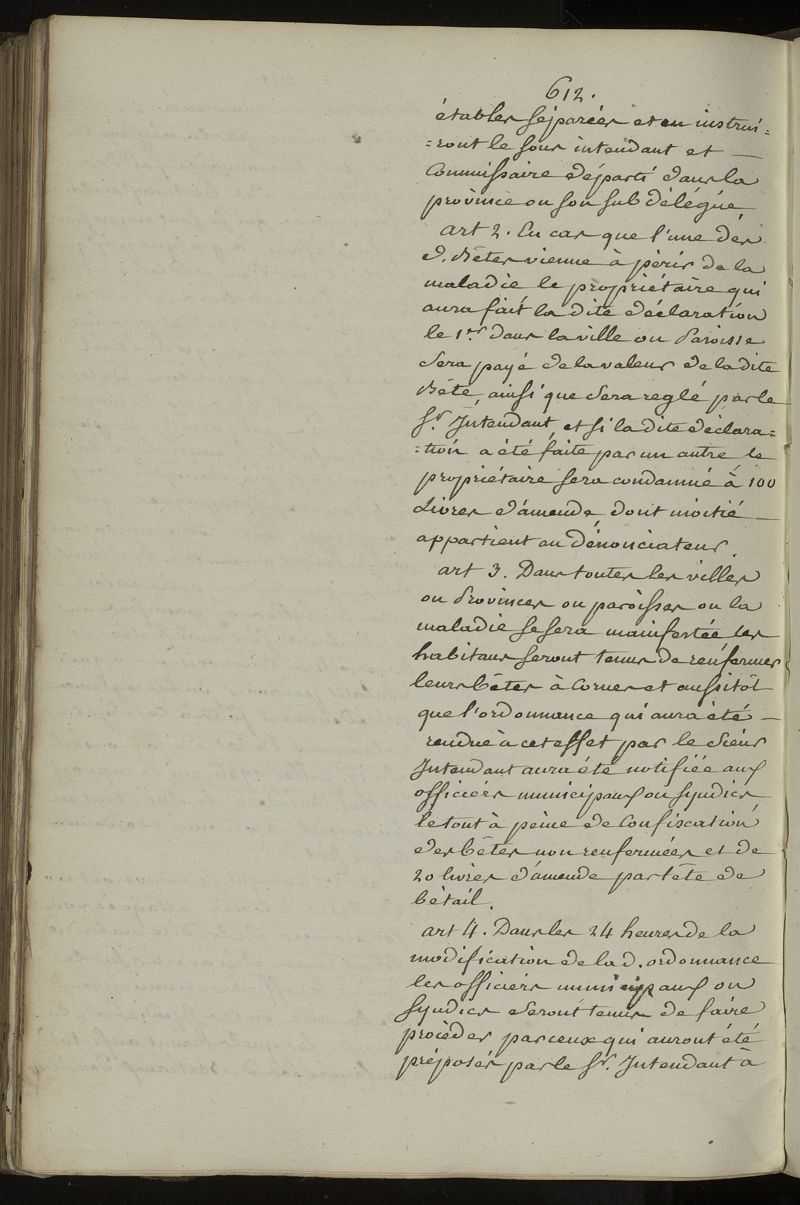 612.
étables séparées et en instrui=
=ront le sous intendant et —
Commissaire départi dans la
province ou son subdélégué,
art 2. En cas que l'une des
d. Bêtes vienne à périr de la
maladie le propriétaire qui
aura fait la dite déclaration
le 1er dans la ville ou Paroisse
sera payé de la valeur de la dite
Bête, ainsi que sera reglé par le
Sr. Intendant, et si la dite déclara=
=tion a été faite par un autre, le
propriétaire sera condamné à 100
Livres d'amende dont moitié —
appartient au Dénonciateur.
art 3. Dans toutes les villes
ou Provinces ou paroisses ou la
maladie se sera manifestée les
habitans seront tenus de renfermer
leurs bêtes à Cornes et aussitôt
que l'ordonnance qui aura été —
rendue à cet effet par le Sieur
Intendant aura été notifiée aux
officiers municipaux ou syndics
le tout à peine de Confiscation
des bêtes non renfermées et de
20 livres d'amende par tête de
bétail.
art 4. Dans les 24 heures de la
modification de la d. ordonnance
les officiers municipaux ou
syndics seront tenus de faire
procéder par ceux qui auront été
préposés par le Sr. Intendant à